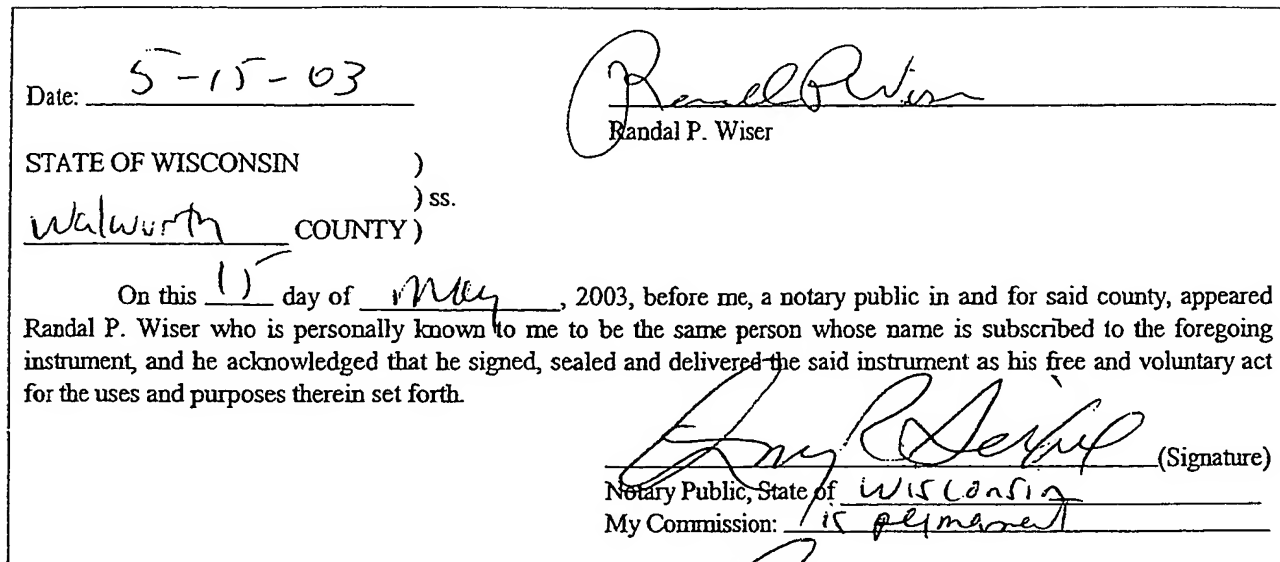 Date: 5-15-03 Randal P Wiser
Randal P. Wiser
STATE OF WISCONSIN )
) ss.
Walworth COUNTY )
On this 15 day of May, 2003, before me, a notary public in and for said county, appeared
Randal P. Wiser who is personally known to me to be the same person whose name is subscribed to the foregoing
instrument, and he acknowledged that he signed, sealed and delivered the said instrument as his free and voluntary act
for the uses and purposes therein set forth.
(Signature)
Notary Public, State of Wisconsin
My Commission: is permanent